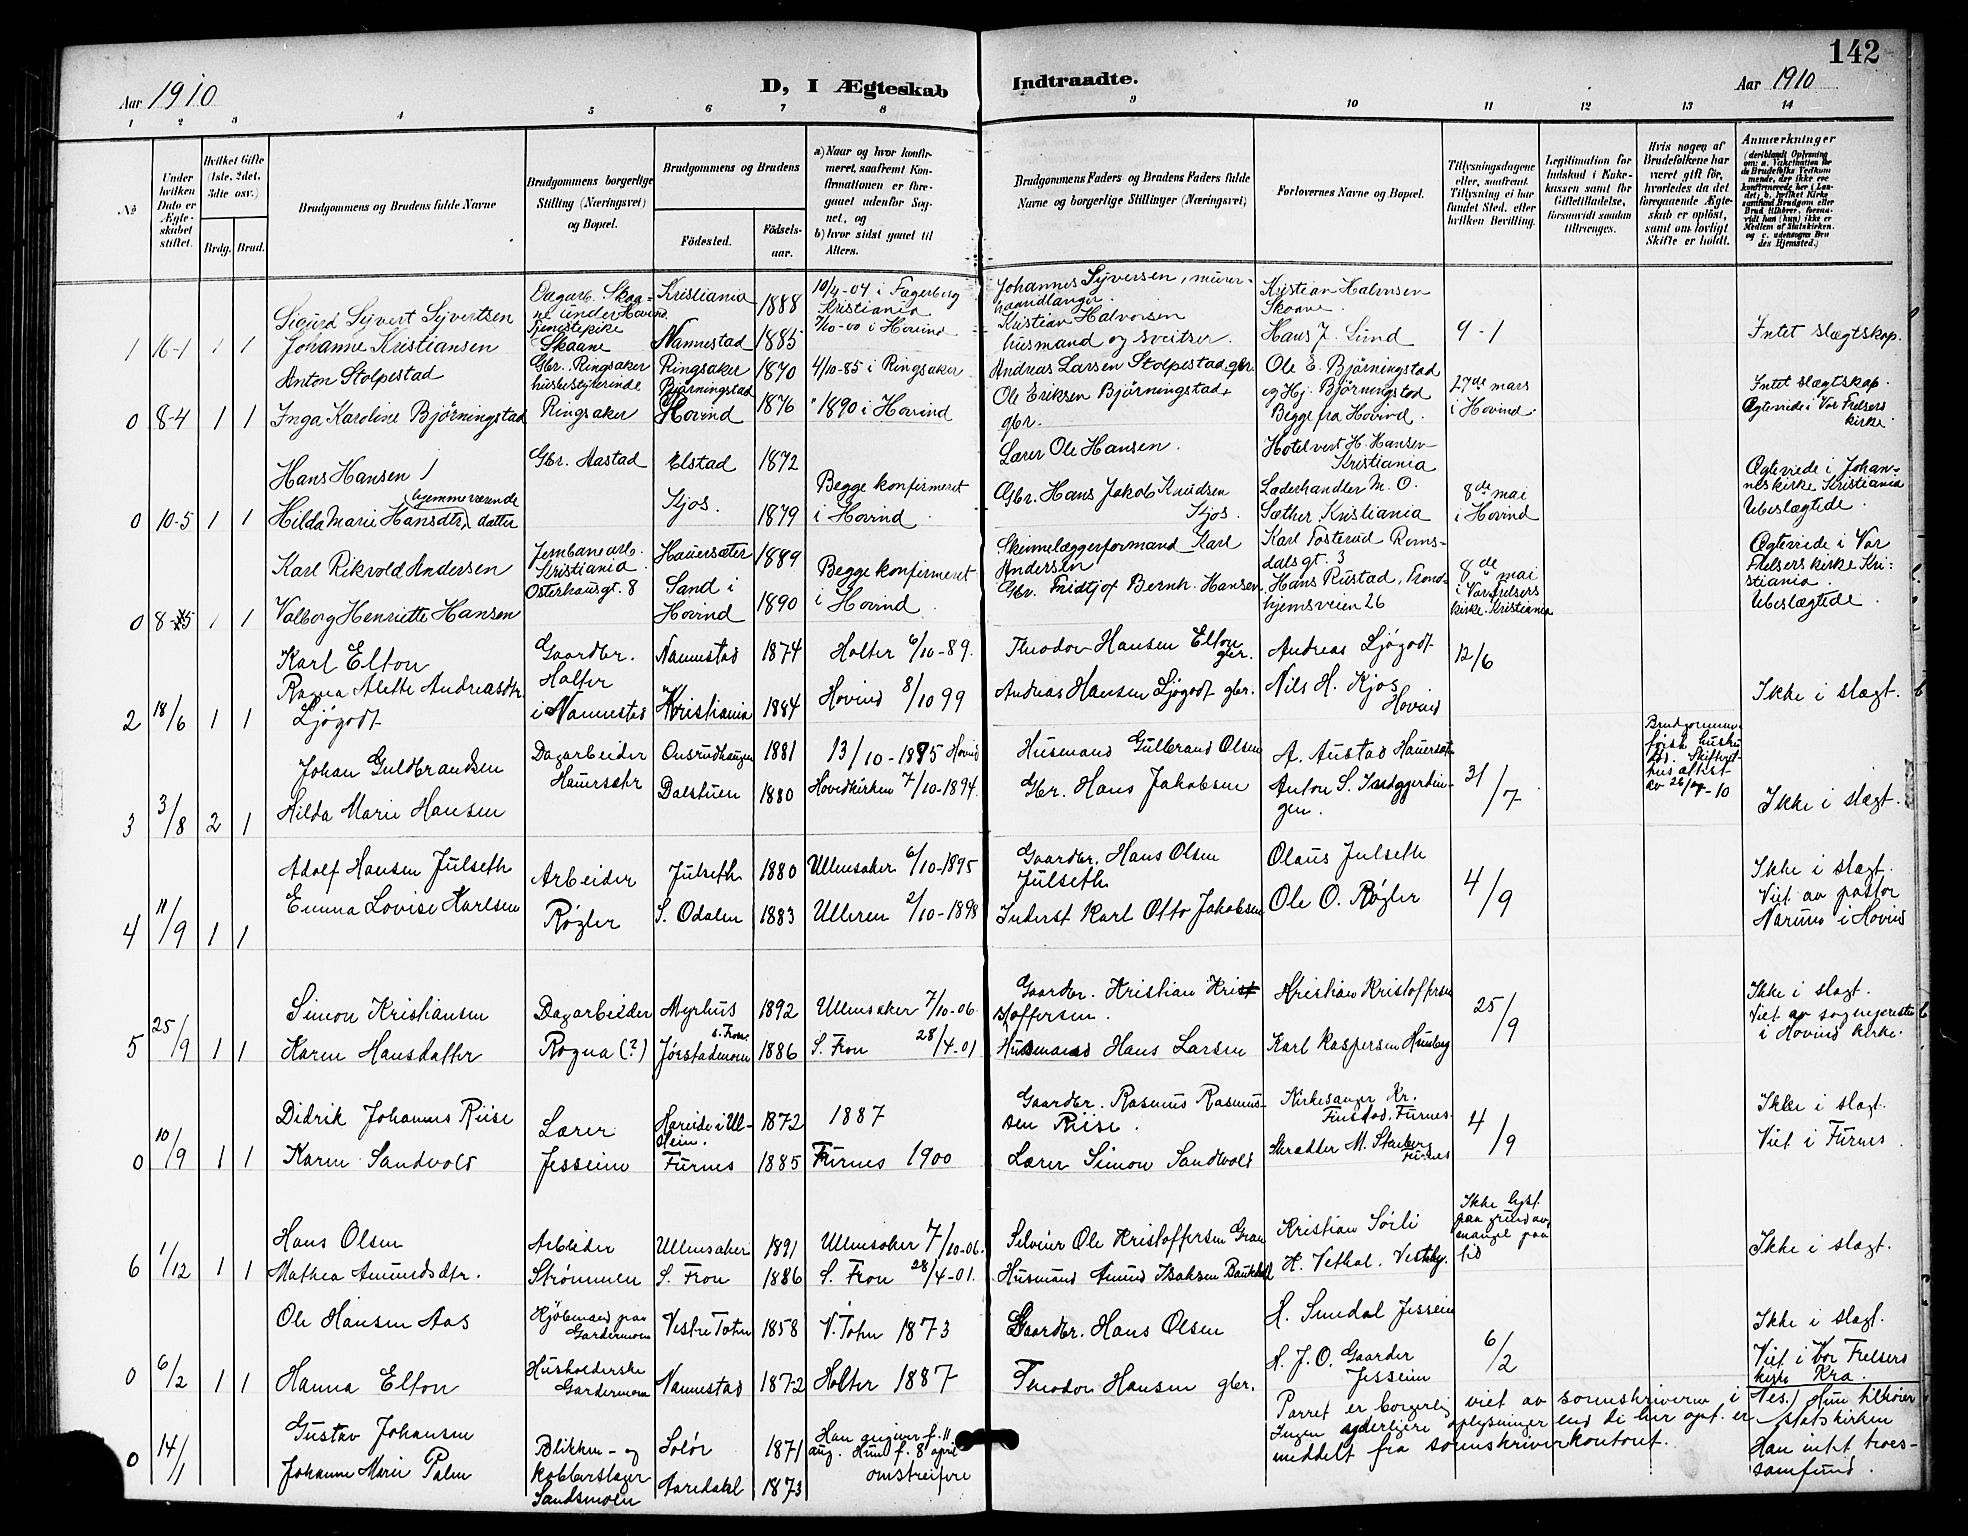 142
Aar 1910
D, I Ægteskab Indtraadte.
Aar 1910
1 2 3 4 5 6 7 8 9 10 11 12 13 14
No
Under hvilken Dato er Ægteskabet stiftet.
Hvilket Gifte (1ste, 2det, 3die osv.)
Brdg. Brud.
Brudgommens og Brudens fulde Navne
Brudgommens borgerlige Stilling (Næringsvei) og Bopæl.
Brudgommens og Brudens
Fødested.
Fødsels-aar.
a) Naar og hvor konfirmeret, saafremt Konfirmationen er foregaaet udenfor Sognet, og
b) hvor sidst gaaet til Alters.
Brudgommens Faders og Brudens Faders fulde Navne og borgerlige Stillinger (Næringsvei)
Forlovernes Navne og Bopæl.
Tillysningsdagene eller, saafremt Tillysning ei har fundet Sted, efter hvilken Bevilling.
Legitimation for Indskud i Enkekassen samt for Giftetilladelse, forsaavidt saadan tiltrænges.
Hvis nogen af Brudefolkene har været gift før, hvorledes da det foregaaende Ægteskab er opløst, samt om lovligt Skifte er holdt.
Anmærkninger
1 16-1 1 1
Sigurd Syvert Syvertsen
Johanne Kristiansen
Dagarb. Skaane under Hovind.
Tjenestepike Skaane
Kristiania 1888
Nannestad 1885
10/4-04 i Fagerborg Kristiania
7/10-00 i Hovind
Johannes Syversen, murerhaandlanger.
Kristian Halvorsen husmand og sveitser.
Kristian Halvorsen Skaane
Hans J. Lund
9-1
Intet slægtskap.
0 8-4 1 1
Anton Stolpestad
Inga Karoline Bjørningstad
Gbr. Ringsaker
husbestyrerinde Ringsaker
Ringsaker 1870
Bjørningstad Hovind 1876
4/10-85 i Ringsaker
" 1890 i Hovind
Andreas Larsen Stolpestad, gbr.
Ole Eriksen Bjørningstad, gbr.
Ole E. Bjørningstad
og Hj. Bjørningstad
Begge fra Hovind.
27de mars i Hovind.
Intet slægtskap.
Ægteviede i Vor Frelsers kirke.
0 10-5 1 1
Hans Hansen
Hilda Marie Hansdtr. hjemmeværende datter
Gbr. Aastad
Elstad 1872
Kjos. 1879
Begge konfirmeret i Hovind.
Lærer Ole Hansen.
Gbr. Hans Jakob Knudsen Kjos.
Hotelvert H. Hansen Kristiania
Læderhandler M. O. Sæther. Kristiania
8de mai i Hovind
Ægteviede i Johanneskirke Kristiania
Ubeslægtede.
0 8-5 1 1
Karl Rikvold Andersen
Valborg Henriette Hansen
Jernbanearb. Kristiania.
Osterhausgt. 8
Hauersæter 1889
Sand i Hovind 1890
Begge konfirmeret i Hovind.
Skinnelæggerformand Karl Andersen
Gbr. Fridtjof Bernh. Hansen
Karl Fosterud Romsdalsgt. 3
Hans Rustad, Trondhjemsveien 26
8de mai i Vor Frelsers kirke. Kristiania
Ægteviede i Vor Frelsers kirke Kristiania.
Ubeslægtede.
2 18/6 1 1
Karl Elton
Ragna Alette Andreasdtr. Ljøgodt
Gaardbr. Holter i Nannestad
Nannestad 1874
Kristiania 1884
Holter 6/10-89.
Hovind 8/10 99
Theodor Hansen Elton gbr.
Andreas Hansen Ljøgodt gbr.
Andreas Ljøgodt
Nils H. Kjos Hovind
12/6
Ikke i slægt.
3 3/8 2 1
Johan Guldbrandsen
Hilda Marie Hansen
Dagarbeider Hauersætr
Onsrudhaugen 1881
Dalstuen 1880
13/10-1895 Hovind
Hovedkirken 7/10-1894.
Husmand Gulbrand Olsen
Gbr. Hans Jakobsen
A. Austad Hauersæt.
Anton S.
31/7
Brudgommens første hustru død. Skifteret-
av 26/ -10
Ikke i slægt.
4 11/9 1 1
Adolf Hansen Julseth
Emma Lovise Karlsen
Arbeider Røgler
Julseth 1880
S. Odalen 1883
Ullensaker 6/10-1895
Ulleren 2/10-1898
Gaardbr. Hans Olsen Julseth
Inderst Karl Otto Jakobsen
Olaus Julseth
Ole O. Røgler
4/9
Ikke i slægt.
Viet av pastor i Hovind
5 25/9 1 1
Simon Kristiansen
Karen Hansdatter
Dagarbeider Rogna (?)
Myrhus 1892
s. Fron. Jørstadmoen 1886
Ullensaker 7/10-06.
S. Fron 28/4-01
Gaardbr. Kristian Kristoffersen.
Husmand Hans Larsen
Kristian Kristoffersen
Karl Kaspersen
25/9
Ikke i slægt.
Viet av sognepresten i Hovind kirke.
0 10/9 1 1
Didrik Johannes Riise
Karen Sandvold
Lærer Jesseim
Hareide i Ulstein. 1872
Furnes 1885
1887
Furnes 1900
Gaardbr. Rasmus Rasmussen Riise.
Lærer Simon Sandvold
Kirkesanger Kr. Finstad, Furnes.
Skrædder M. Furnes
4/9
Ikke i slægt.
Viet i Furnes.
6 1/12 1 1
Hans Olsen
Mathea Amundsdtr.
Arbeider Strømmen
Ullensaker 1891
S. Fron 1886
Ullensaker 7/10-06.
S. Fron 28/4-01.
Selveier Ole Kristoffersen Gran
Husmand Amund Isaksen
Kristian Sørli
H. Vethal. Vestby.
Ikke lyst paa grund av mangel paa tid
Ikke i slægt.
0 6/2 1 1
Ole Hansen Aas
Hanna Elton
Kjøbmand paa Gardermoen
Husholderske Gardermoen
Vestre Toten 1858
Nannestad 1872
V. Toten 1873
Holter 1887
Gaardbr. Hans Olsen
Theodor Hansen gbr.
H. Sundal Jesseim
H. J. O. Gaarder Jesseim
6/2
Ikke i slægt.
Viet i Vor Frelsers kirke Kra.
0 14/1
Gustav Johansen
Johanne Marie Palm
Blikken- og kobberslager Sandsmoen
Solør 1871
Aardahl 1873
Han angiver f. 11 aug. Hun f. 8 april
omstreifere
Parret er borgerlig viet av sorenskriveren i Nes. Hun tilhører
Ingen yderligere oplysninger end de her opt. er statskirken
meddelt fra sorenskriverkontoret. Han intet troessamfund.